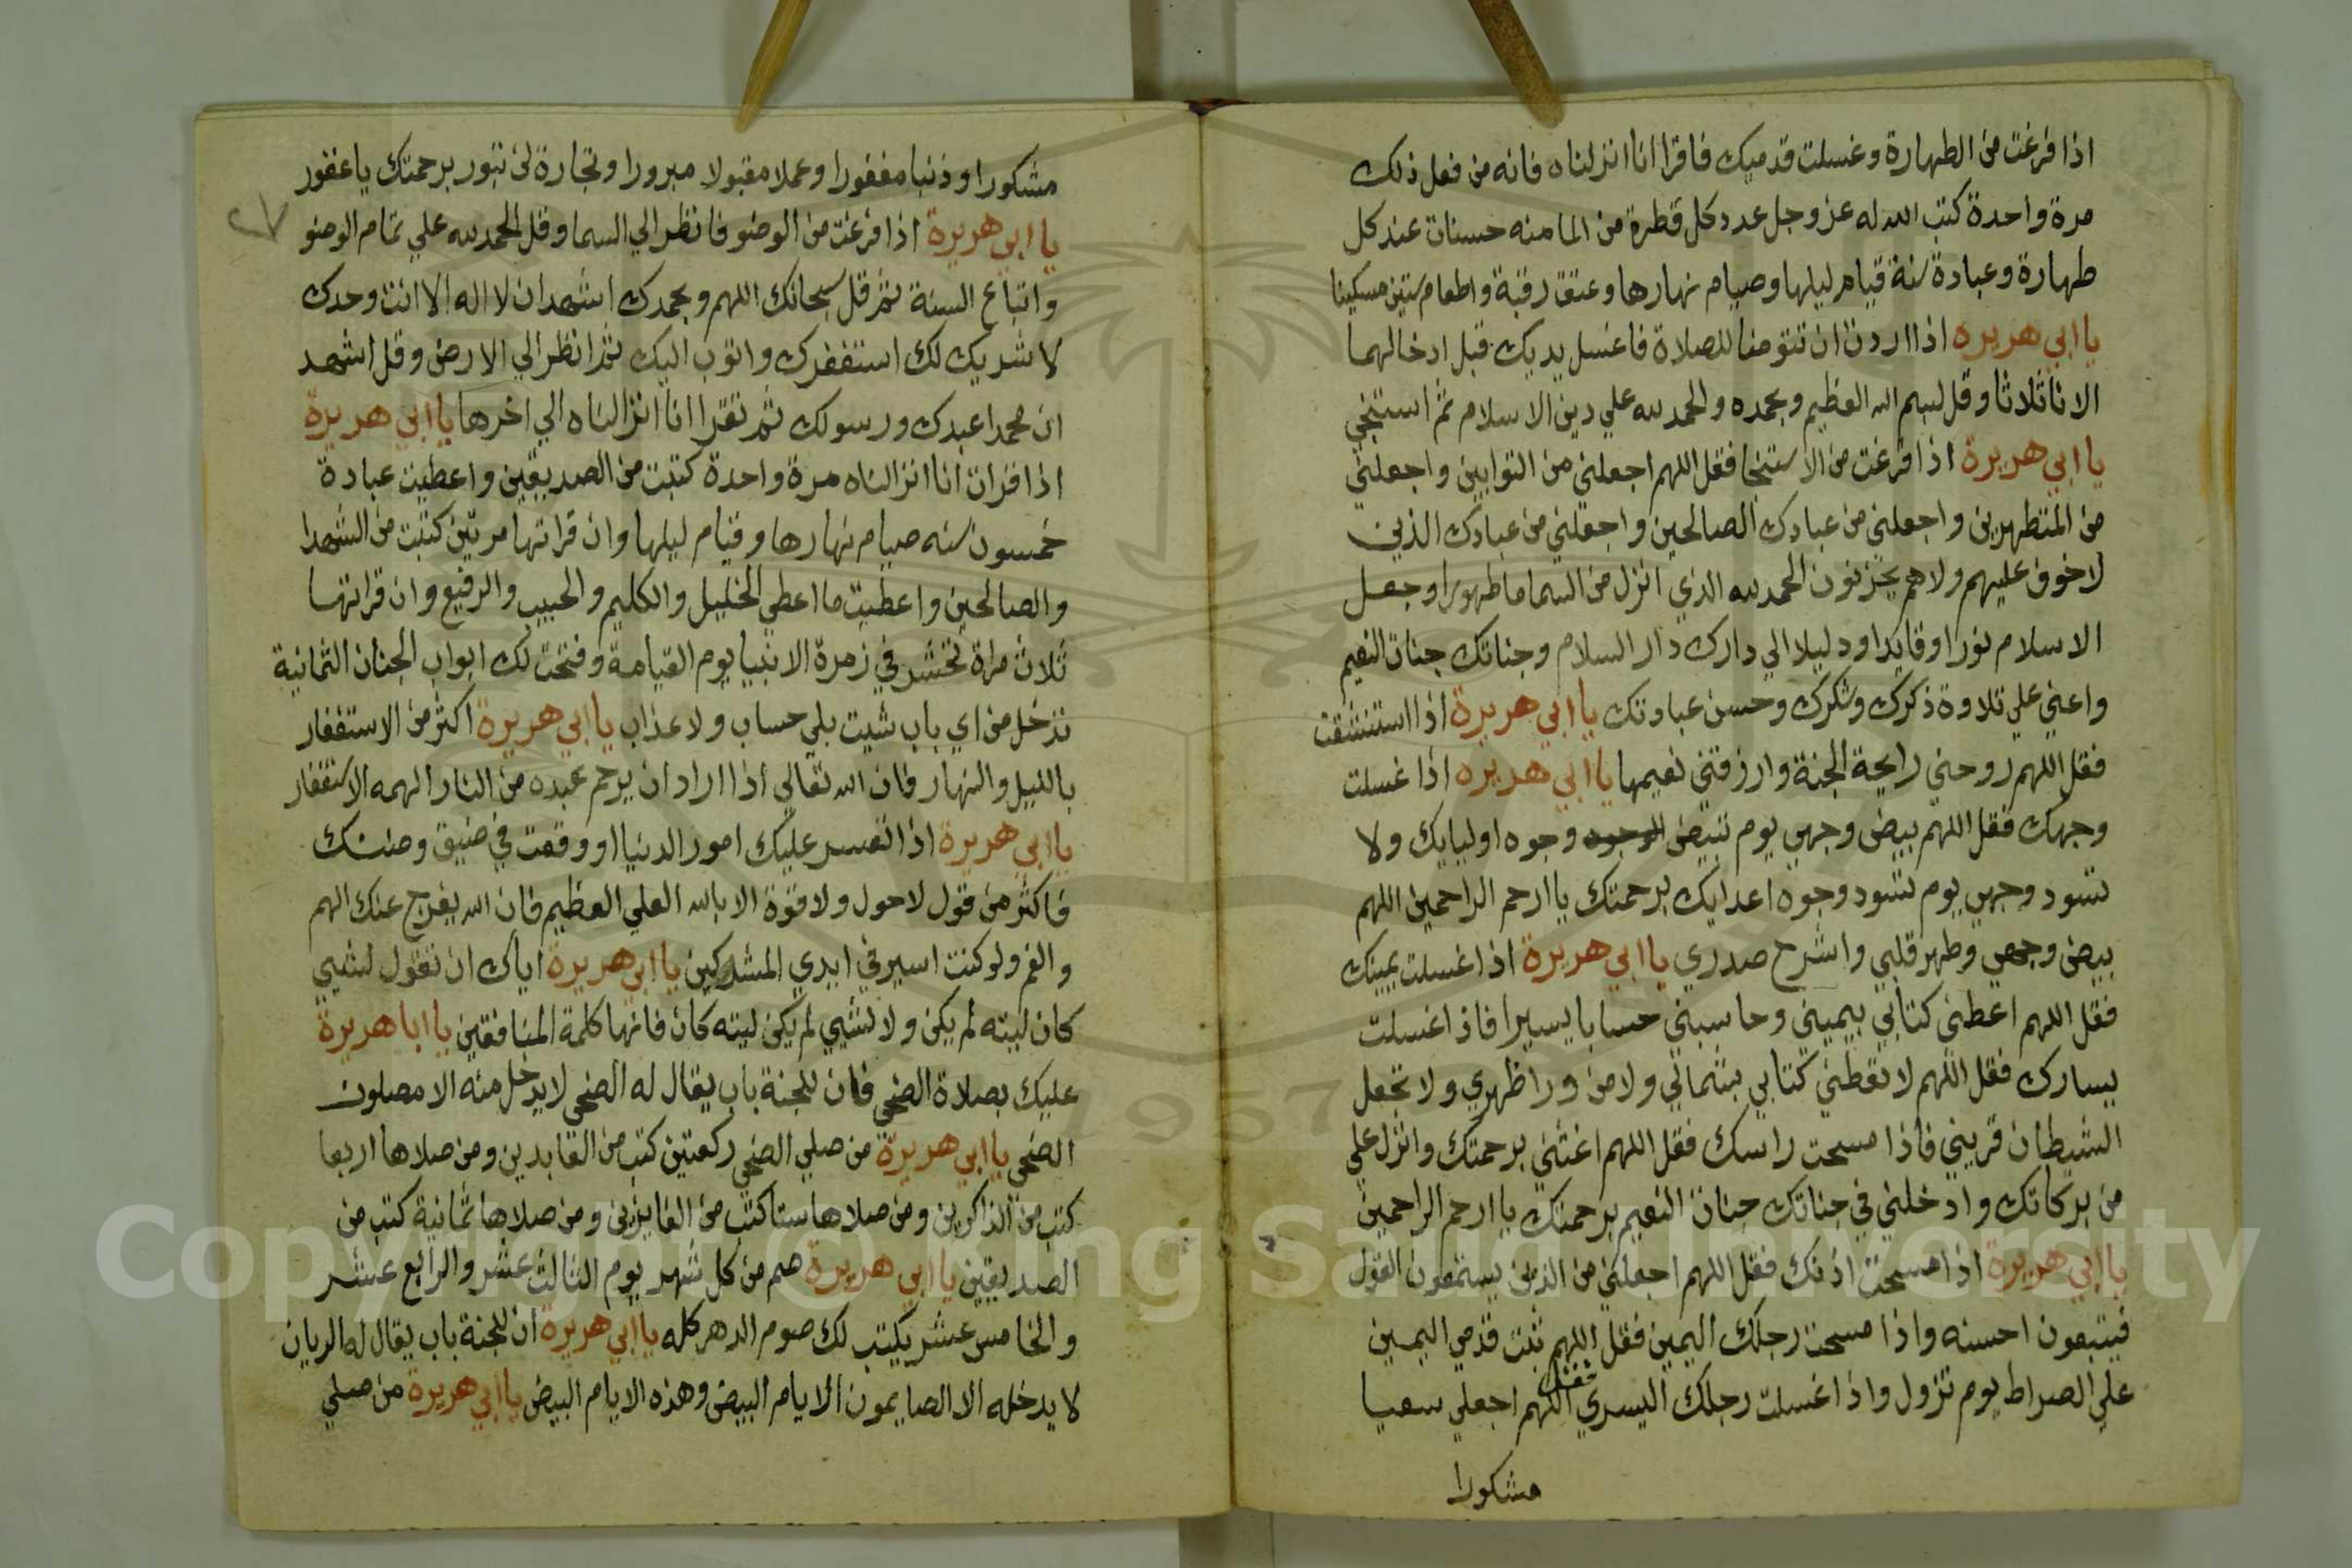 اذا فرغت من الطهارة وغسلت قدميك فاقرا انا انزلناه فانه من فعل ذلك
مرة واحدة كتب الله له عز وجل عدد كل قطرة من الما منه حسنات عند كل
طهارة وعبادة سنة قيام ليلها وصيام نهارها وعتق رقبة واطعام ستين مسكينا
يا ابي هريره اذا اردت ان تتوضا للصلاة فاغسل يديك قبل ادخالهما
الانا ثلاثا وقل لبسم الله العظيم وبحمده والحمد لله علي دين الاسلام ثم استنجي
يا ابي هريرة اذا فرغت من الاستنجا فقل اللهم اجعلني من التوابين واجعلني
من المتطهرين واجعلني من عبادك الصالحين واجعلني من عبادك الذين
لا خوف عليهم ولا هم يحزنون الحمد لله الذي انزل من السما ما طهورا وجعل
الاسلام نورا وقايدا ودليلا الي دارك دار السلام وجناتك جنات النعيم
واعني علي تلاوة ذكرك وشكرك وحسن عبادتك يا ابي هريرة اذا استنشقت
فقل اللهم روحني رايحة الجنة وارزقني نعيمها يا ابي هريره اذا غسلت
وجهك فقل اللهم بيض وجهي يوم تبيض الوجوه وجوه اوليايك ولا
تسود وجهي يوم تسود وجوه اعدايك برحمتك يا ارحم الراحمين اللهم
بيض وجهي وطهر قلبي واشرح صدري يا ابي هريرة اذا غسلت يمينك
فقل اللهم اعطني كتابي بيميني وحاسبني حسابا يسيرا فاذا غسلت
يسارك فقل اللهم لا تعطني كتابي بشمالي ولا من ورا ظهري ولا تجعل
الشيطان قريني فاذا مسحت راسك فقل اللهم اغثني برحمتك وانزل علي
من بركاتك وادخلني في جناتك جنات النعيم برحمتك يا ارحم الراحمين
يا ابي هريرة اذا مسحت اذنك فقل اللهم اجعلني من الذين يستمعون القول
فيتبعون احسنه واذا مسحت رجلك اليمين فقل اللهم ثبت قدمي اليمين
علي الصراط يوم تزول واذا غسلت رجلك اليسري فقل اللهم اجعلي سعيا
مشكورا
مشكورا وذنبا مغفورا وعملا مقبولا مبرورا وتجارة لن تبور برحمتك يا غفور
٢٧
يا ابي هريرة اذا فرغت من الوضو فانظر الي السما وقل الحمد لله علي تمام الوضو
واتباع السنة ثم قل سبحانك اللهم وبحمدك اشهد ان لا اله الا انت وحدك
لا شريك لك استغفرك واتوب اليك ثم انظر الي الارض وقل اشهد
ان محمدا عبدك ورسولك ثم تقرا انا انزالناه الي اخرها يا ابي هريرة
اذا قرات انا انزالناه مرة واحدة كتبت من الصديقين واعطيت عبادة
خمسون سنه صيام نهارها وقيام ليلها وان قراتها مرتين كتبت من الشهدا
والصالحين واعطيت ما اعطي الخليل والكليم والحبيب والرفيع وان قراتها
ثلاث مراة تحشر في زمرة الانبيا يوم القيامة وفتحت لك ابواب الجنان الثمانية
تدخل من اي باب شيت بلي حساب ولا عذاب يا ابي هريرة اكثر من الاستغفار
بالليل والنهار فان الله تعالي اذا اراد ان يرحم عبده من النار الهمه الاستغفار
يا ابي هريرة اذا تعسر عليك امور الدنيا او وقعت في ضيق وضنك
فاكثر من قول لا حول ولا قوة الا بالله العلي العظيم فان الله يفرج عنك الهم
والغم ولو كنت اسير في ايدي المشركين يا ابي هريرة اياك ان تقول لشيي
كان ليته لم يكن ولا لشيي لم يكن ليته كان فانها كلمة المنافقين يا ابا هريرة
عليك بصلاة الضحي فان للجنة باب يقال له الضحي لا يدخل منه الا مصلون
الضحي يا ابي هريرة من صلي الضحي ركعتين كتب من العابدين ومن صلاها اربعا
كتب من الذاكرين ومن صلاها ستا كتب من الفايزين ومن صلاها ثمانية كتب من
الصديقين يا ابي هريرة صم من كل شهر يوم الثالث عشر والرابع عشر
والخامس عشر يكتب لك صوم الدهر كله يا ابي هريرة ان للجنة باب يقال له الريان
لا يدخله الا الصايمون الايام البيض وهذه الايام البيض يا ابي هريرة من صلي
Copyright © King Saud University
1957